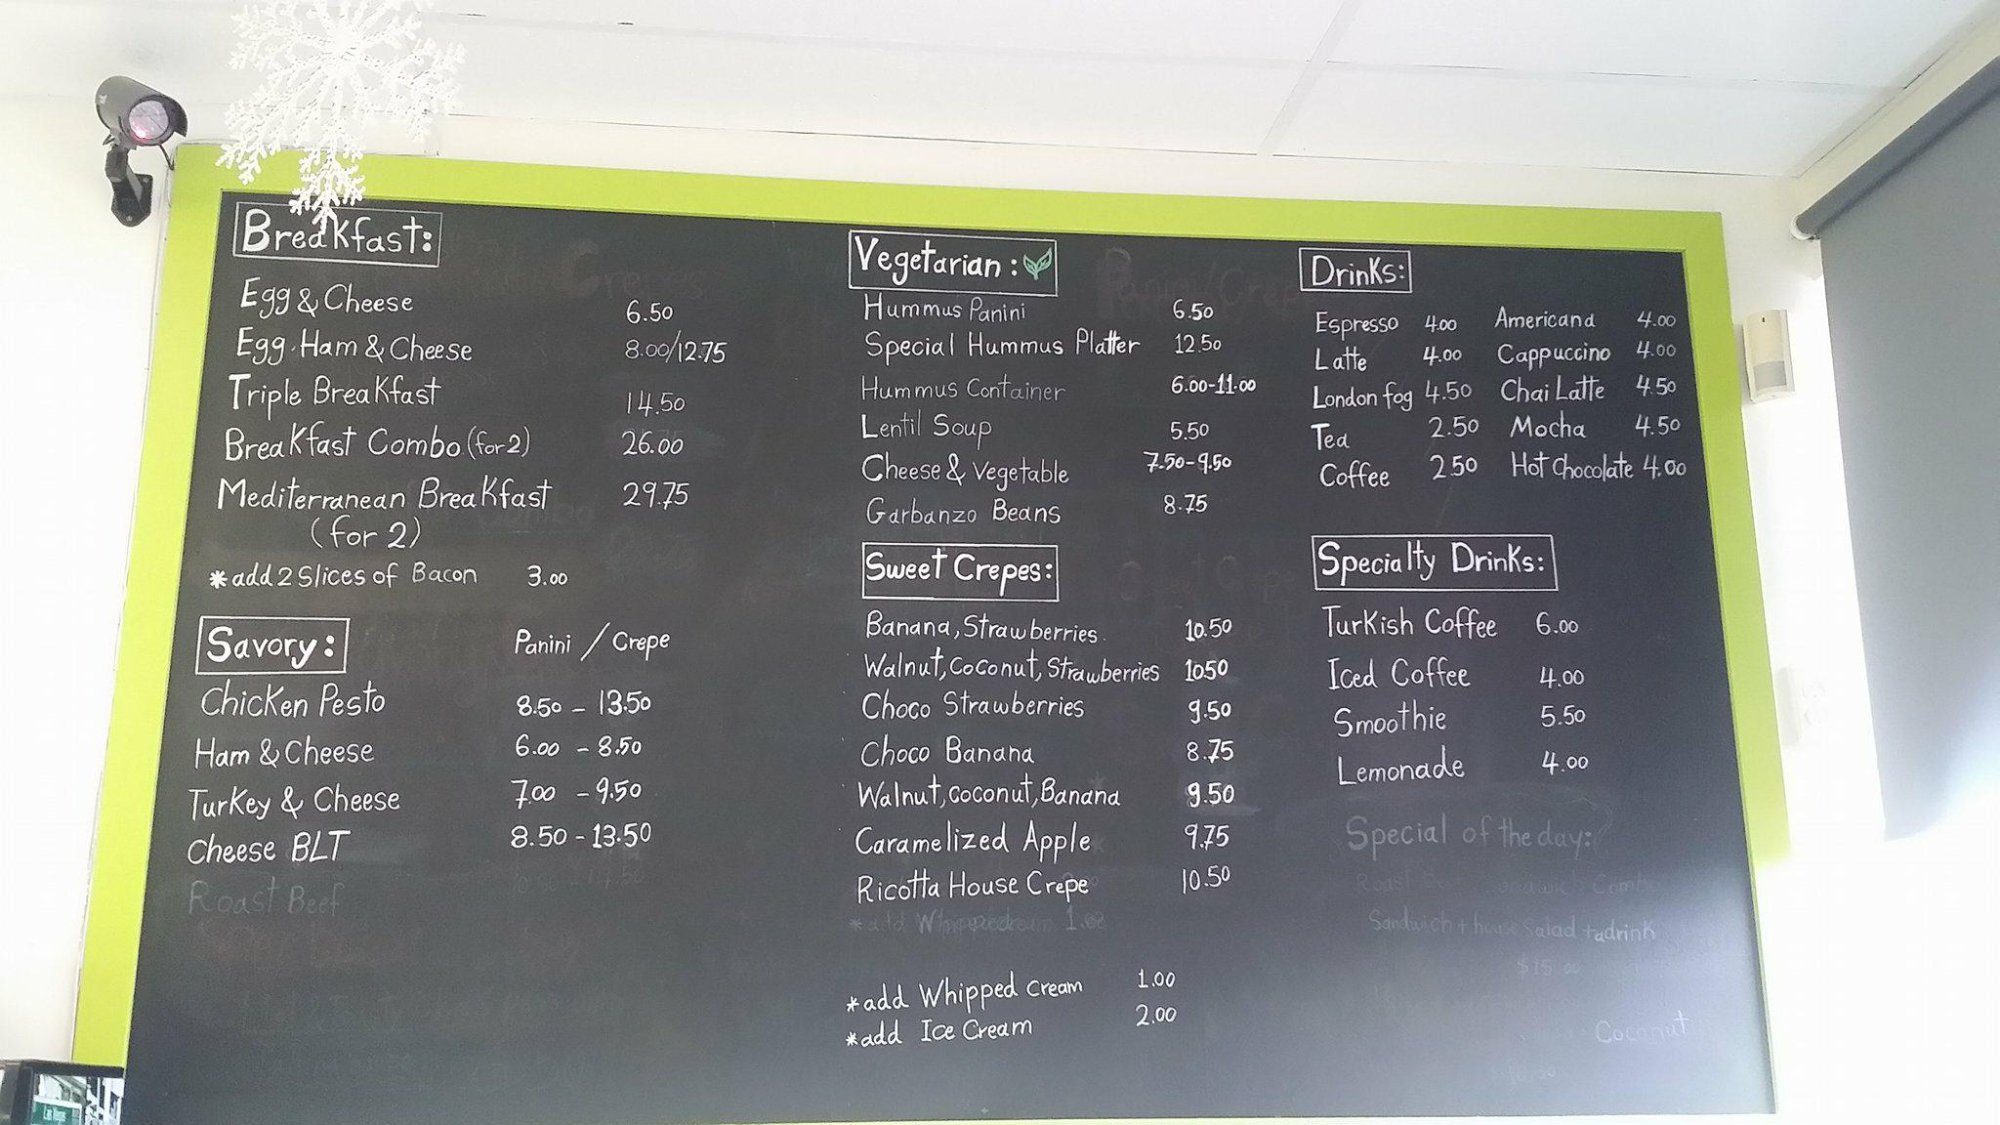 Breakfast:
Egg & Cheese 6.50
Egg Ham & Cheese 8.00/12.75
Triple Breakfast 14.50
Breakfast Combo (for 2) 26.00
Mediterranean Breakfast 29.75
(for 2)
*add 2 Slices of Bacon 3.00
Savory: Panini / Crepe
Chicken Pesto 8.50 - 13.50
Ham & Cheese 6.00 - 8.50
Turkey & Cheese 7.00 - 9.50
Cheese BLT 8.50 - 13.50
Roast Beef
Vegetarian:
Hummus Panini 6.50
Special Hummus Platter 12.50
Hummus Container 6.00-11.00
Lentil Soup 5.50
Cheese & Vegetable 7.50-9.50
Garbanzo Beans 8.75
Sweet Crepes:
Banana, Strawberries 10.50
Walnut, Coconut, Strawberries 10.50
Choco Strawberries 9.50
Choco Banana 8.75
Walnut, coconut, Banana 9.50
Caramelized Apple 9.75
Ricotta House Crepe 10.50
*add Whipped cream 1.00
*add Ice Cream 2.00
Drinks:
Espresso 4.00 Americana 4.00
Latte 4.00 Cappuccino 4.00
London fog 4.50 Chai Latte 4.50
Tea 2.50 Mocha 4.50
Coffee 2.50 Hot chocolate 4.00
Specialty Drinks:
Turkish Coffee 6.00
Iced Coffee 4.00
Smoothie 5.50
Lemonade 4.00
Special of the day:
Sandwich + house Salad + a drink
Coconut